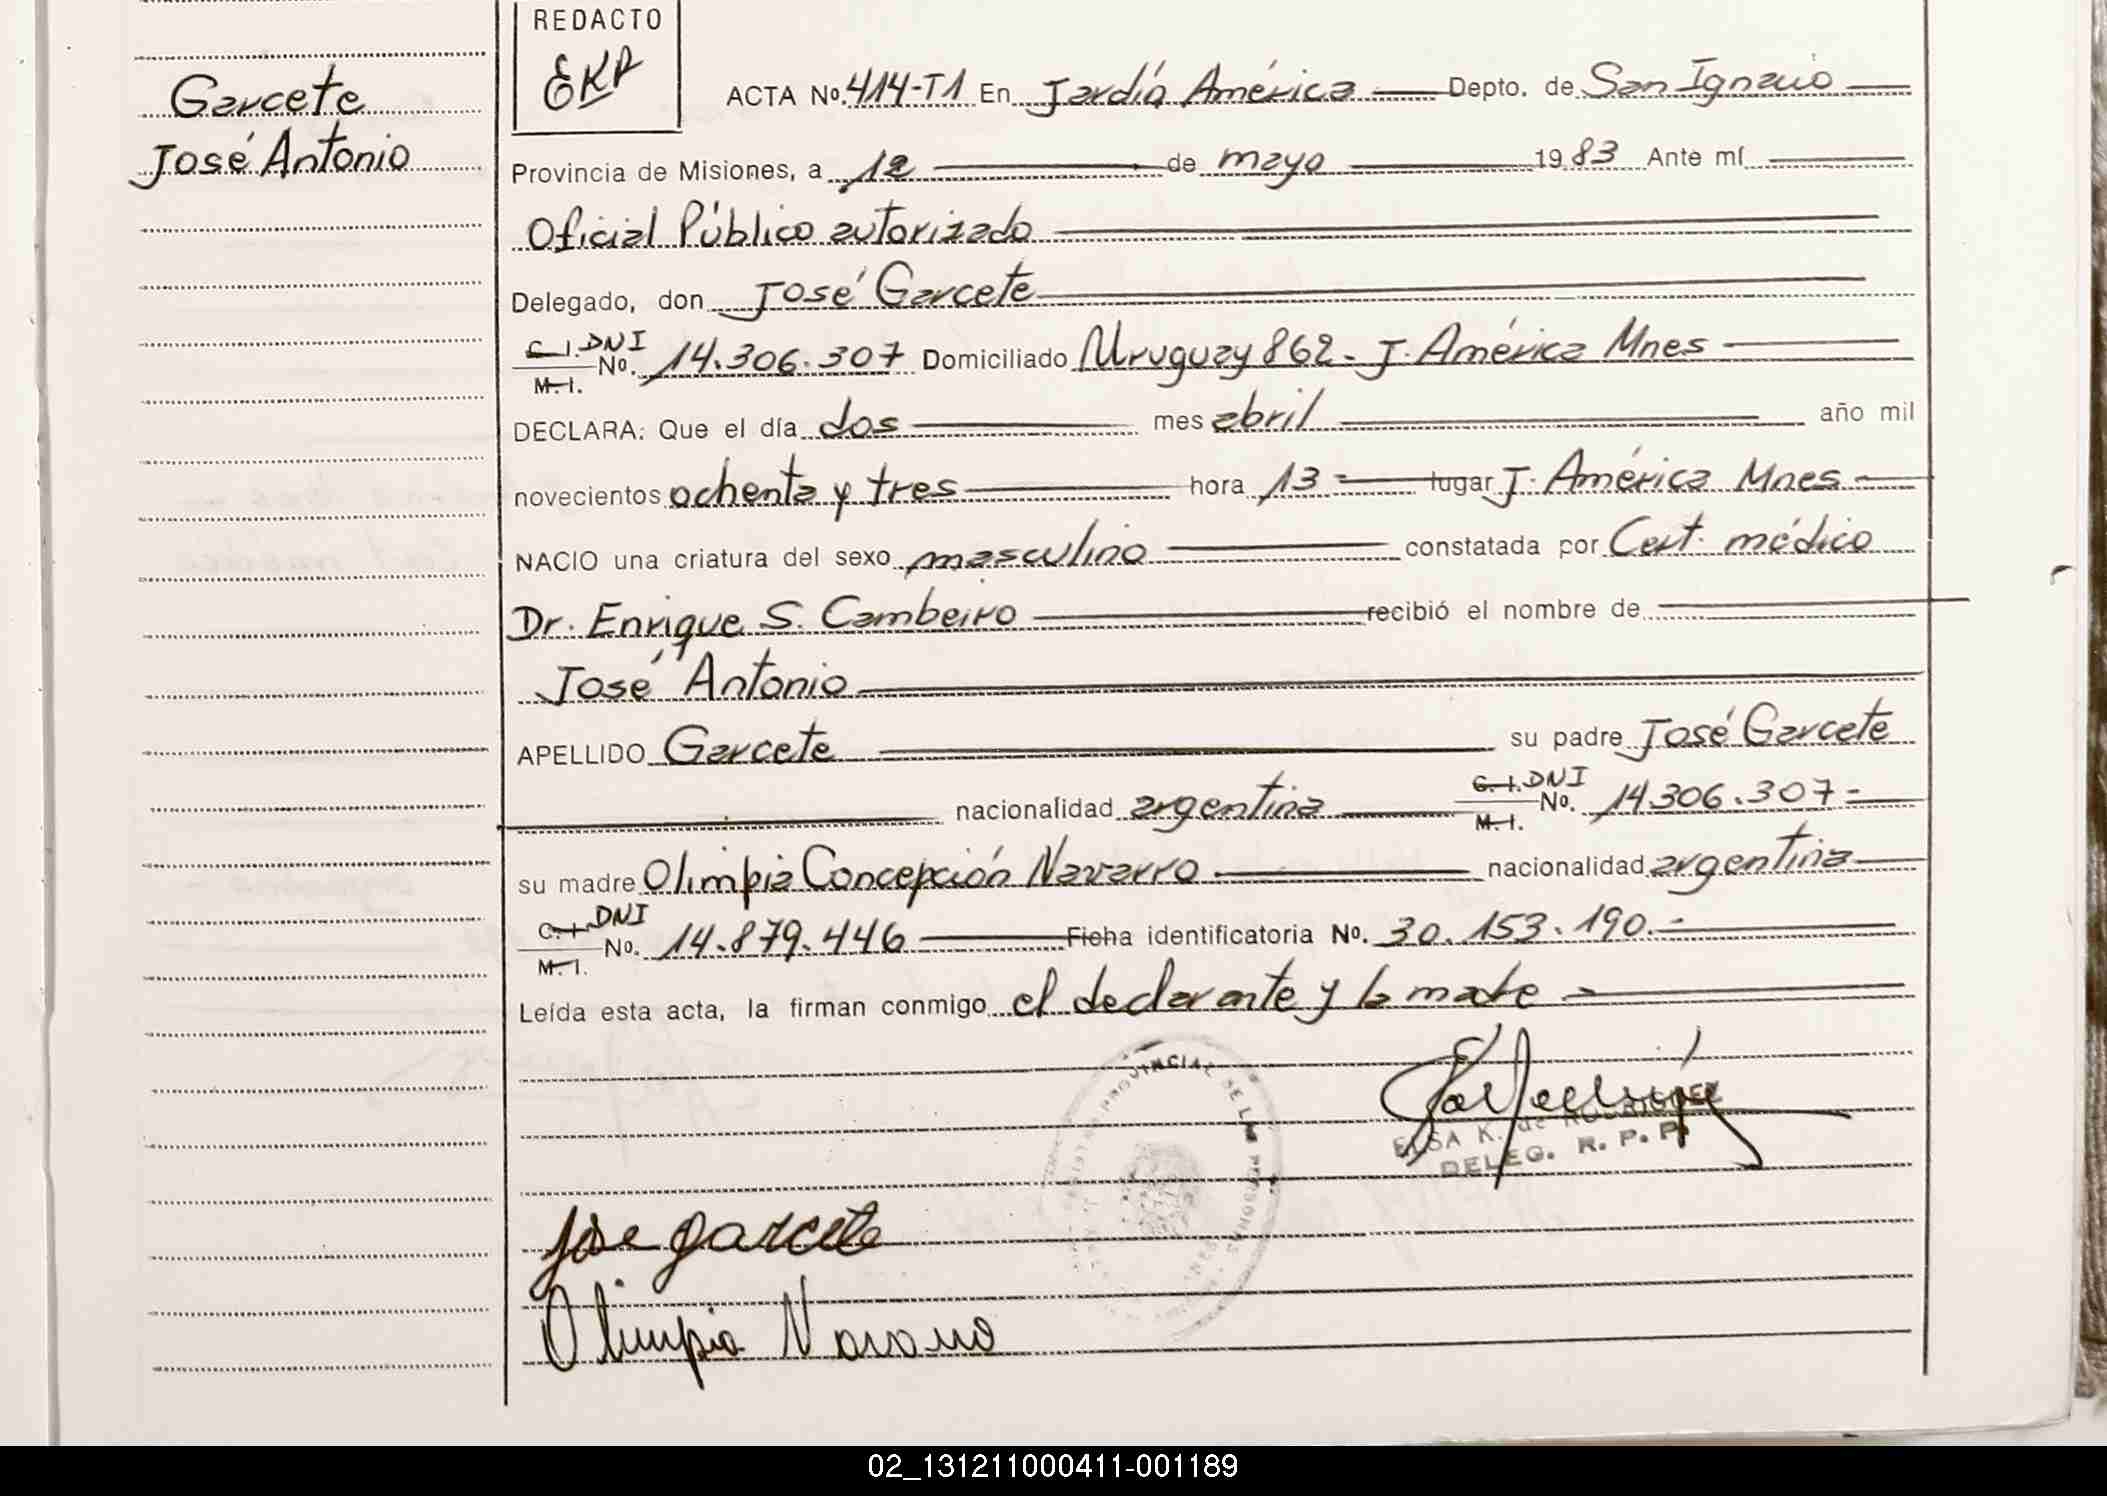 REDACTO
EKR
Garcete
José Antonio
ACTA No. 414-T1 En Jardín América Depto. de San Ignacio
Provincia de Misiones, a 12 de mayo 1983 Ante mí
Oficial Público autorizado
Delegado, don José Garcete
C.I. DNI M.I. No. 14.306.307 Domiciliado Uruguay 862- J. América Mnes
DECLARA: Que el día dos mes abril año mil
novecientos ochenta y tres hora 13- lugar J. América Mnes
NACIO una criatura del sexo masculino constatada por Cert. médico
Dr. Enrique S. Cambeiro recibió el nombre de
José Antonio
APELLIDO Garcete su padre José Garcete
nacionalidad argentina C.I. DNI M.I. No. 14.306.307-
su madre Olimpia Concepción Navarro nacionalidad argentina
C.I. DNI M.I. No. 14.879.446 Ficha identificatoria No. 30.153.190.-
Leída esta acta, la firman conmigo el declarante y la madre
PROVINCIAL DE LAS PERSONAS
ELSA K. de RODRIGUEZ
DELEG. R. P. P.
jose garcete
Olimpia Navarro
02_131211000411-001189